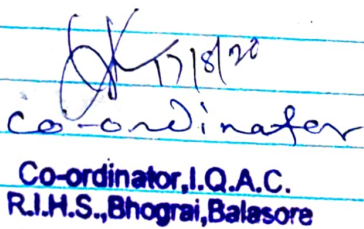 17/8/20
Co-ordinator
Co-ordinator,I.Q.A.C.
R.I.H.S.,Bhograi,Balasore